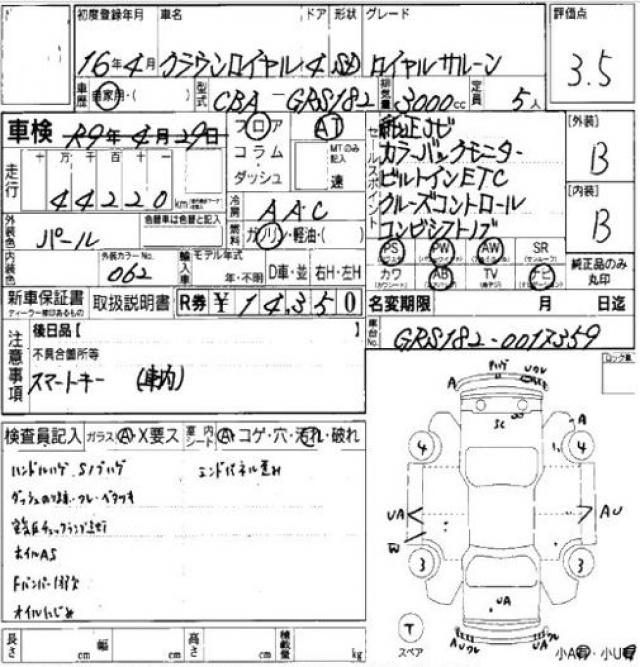 初度登録年月 車名 ドア 形状 グレード 評価点
16年4月 クラウンロイヤル 4 SD ロイヤルサルーン 3.5
車歴 自家用・( ) 型式 CBA-GRS182 排気量 3000cc 定員 5人
車検 R9年4月29日 フロア AT セールスポイント 純正ナビ [外装]
コラム MTのみ記入 カラーバックモニター B
走行 十万千百十一 ダッシュ 速 ビルトインETC
44220km 冷房 AAC クルーズコントロール [内装]
外装色 パール 色替車は色替と記入 燃料 ガソリン・軽油・( ) コンビシフトノブ B
内装色 外装カラーNo. 062 輸入車 モデル年式 年・不明 D車・並 右H・左H
PS PW AW SR (サンルーフ) 純正品のみ丸印
カワ AB TV ナビ
新車保証書 ディーラー印あるもの 取扱説明書 R券 ¥14,350 名変期限 月 日迄
注意事項 後日品 [ ] 車台No. GRS182-0017359
不具合箇所等 ロック車
スマートキー (車内)
検査員記入 ガラス A・X要ス 室内シート A・コゲ・穴・汚れ・破れ
ハンドルハゲ S/ブハゲ エンドパネル歪み
ホイルAS
オイルにじみ
長さ cm 幅 cm 高さ cm 積載量 kg
A UクレA
SC
4 4
UA AU
W
3 3
UA
T スペア
AUクレ UAクレ
小A有・小U有